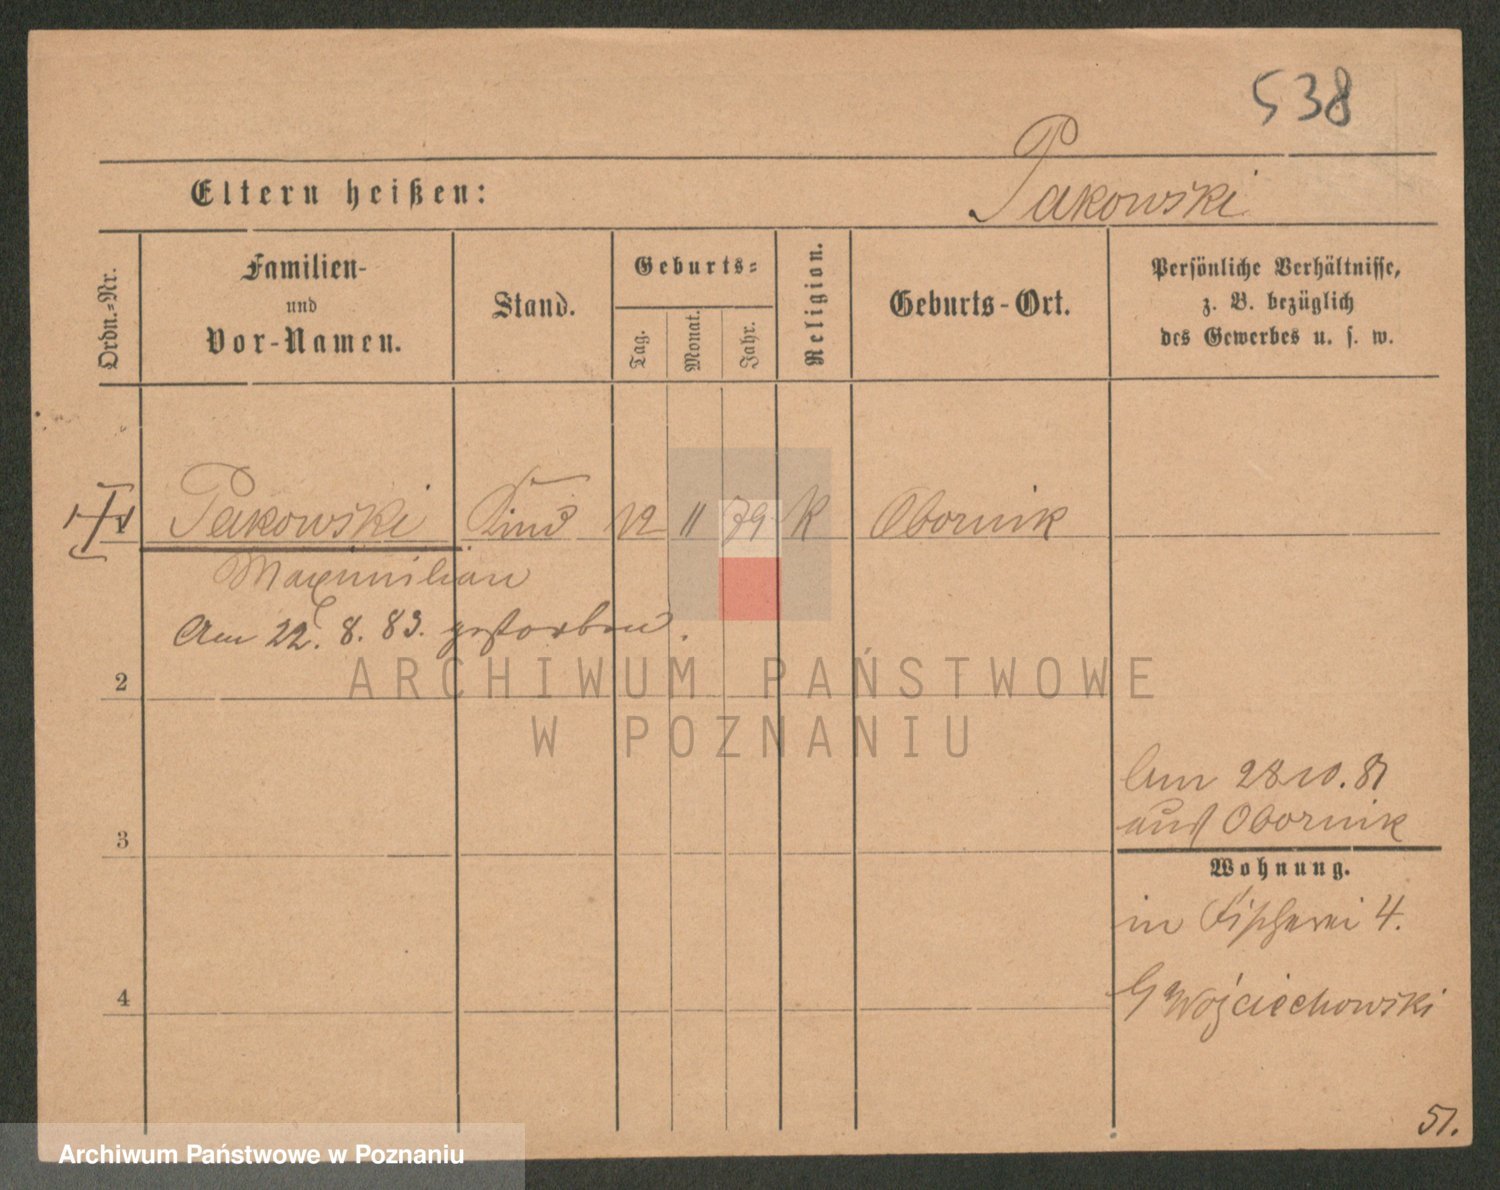 538
Pakowski
Eltern heißen:
Ordn.-Nr.
Familien-
und
Vor-Namen.
Stand.
Geburts-
Tag.
Monat.
Jahr.
Religion.
Geburts-Ort.
Persönliche Verhältnisse,
z. B. bezüglich
des Gewerbes u. s. w.
1 Pakowski Kind 12 11 79 K Obornik
Maximilian
Am 22. 8. 83. gestorben.
ARCHIWUM PAŃSTWOWE
W POZNANIU
2
Am 28 10. 81
aus Obornik
3
Wohnung.
in Fischerei 4.
4
Wojciechowski
51.
Archiwum Państwowe w Poznaniu